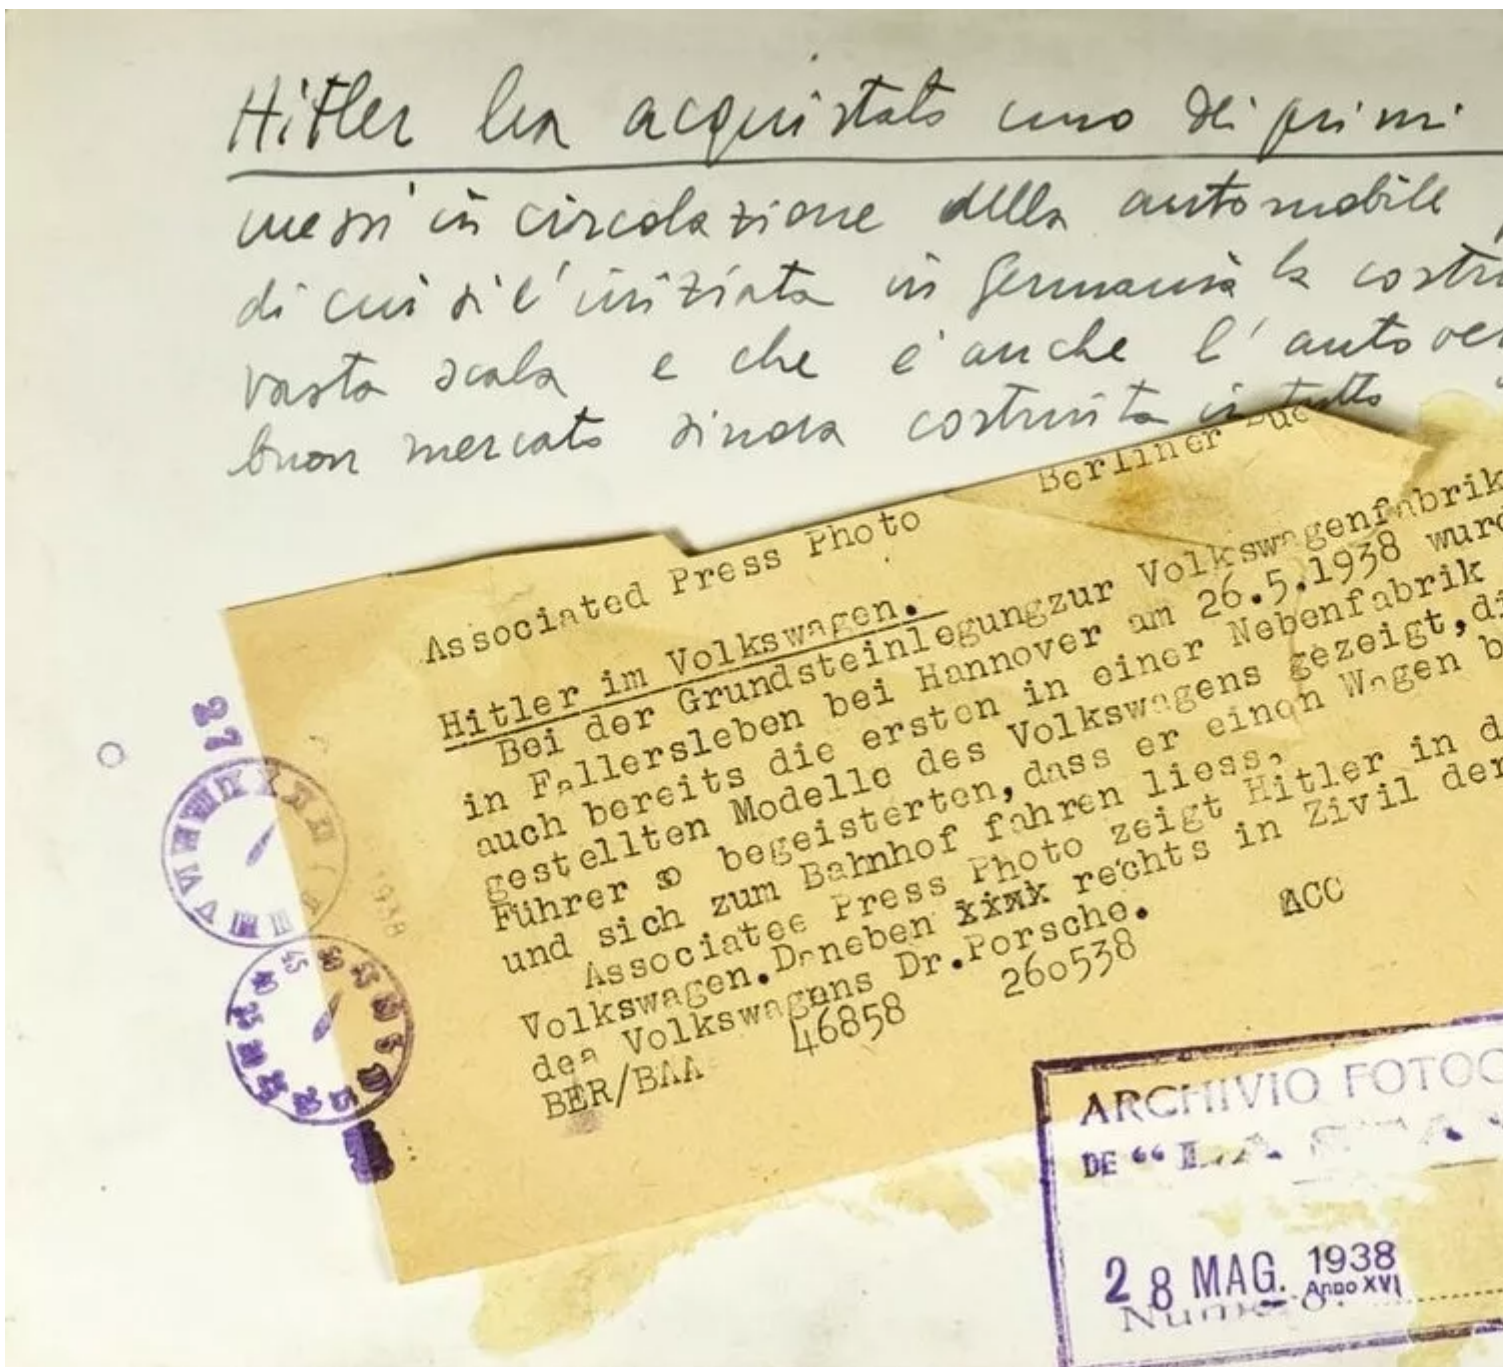 Hitler ha acquistato uno dei primi
messi in circolazione della automobile
di cui si è iniziata in Germania la costru
vasta scala e che è anche l'autove
buon mercato sinora costruita in tutto
Associated Press Photo Berliner
Hitler im Volkswagen.
Bei der Grundsteinlegungzur Volkswagenfabrik
in Fallersleben bei Hannover am 26.5.1938 wurd
auch bereits die ersten in einer Nebenfabrik
gestellten Modelle des Volkswagens gezeigt,di
Führer so begeisterten,dass er einen Wagen b
und sich zum Bahnhof fahren liess.
Associatee Press Photo zeigt Hitler in d
Volkswagen.Daneben xxxx rechts in Zivil der
des Volkswagens Dr.Porsche.
BER/BAA 46858 260538 ACC
27
1938
ARCHIVIO FOTOG
DE "LA STA
28 MAG. 1938
Anno XVI
Numero